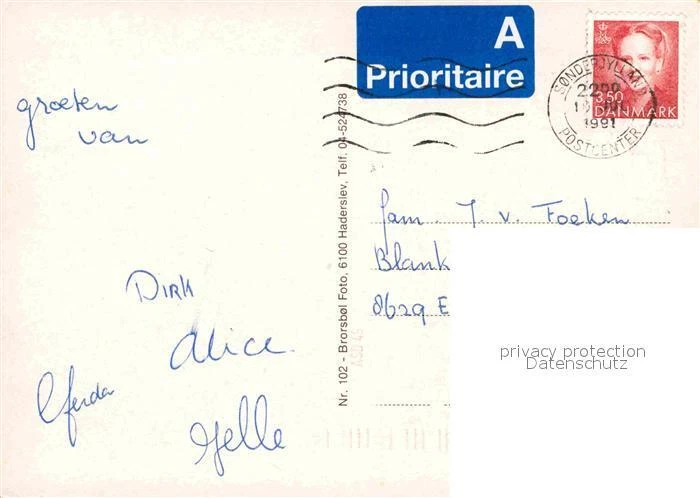 A
Prioritaire
SØNDERJYLLANDS
2200
1991
POSTCENTER
3.50
DANMARK
groeten
van
Dirk
Alice
Jelle
Nr. 102 - Brorsbøl Foto, 6100 Haderslev, Telf. 04-524738
fam. J. v. Foeken
Blank
8629 E
privacy protection
Datenschutz